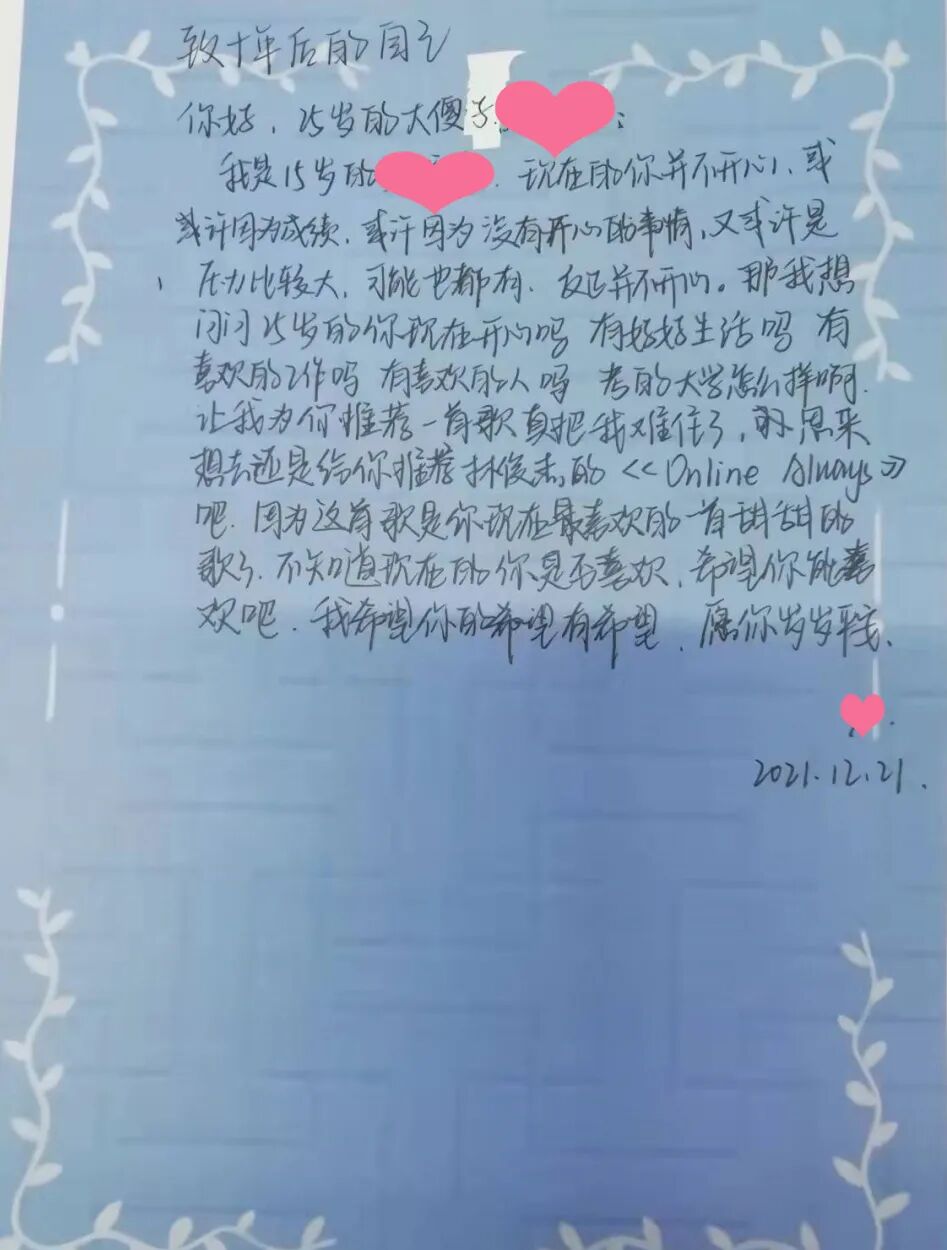 致十年后的自己
你好，25岁的大傻子
：
我是15岁的 . 现在的你并不开心，或
或许因为成绩，或许因为没有开心的事情，又或许是
压力比较大，可能也都有. 反正并不开心。那我想
问问25岁的你现在开心吗 有好好生活吗 有
喜欢的工作吗 有喜欢的人吗 考的大学怎么样啊.
让我为你推荐一首歌真把我难住了，思来
想去还是给你推荐林俊杰的《Online Always》
吧. 因为这首歌是你现在最喜欢的一首甜甜的
歌了. 不知道现在的你是否喜欢，希望你能喜
欢吧. 我希望你的希望有希望，愿你岁岁平安.
2021.12.21.